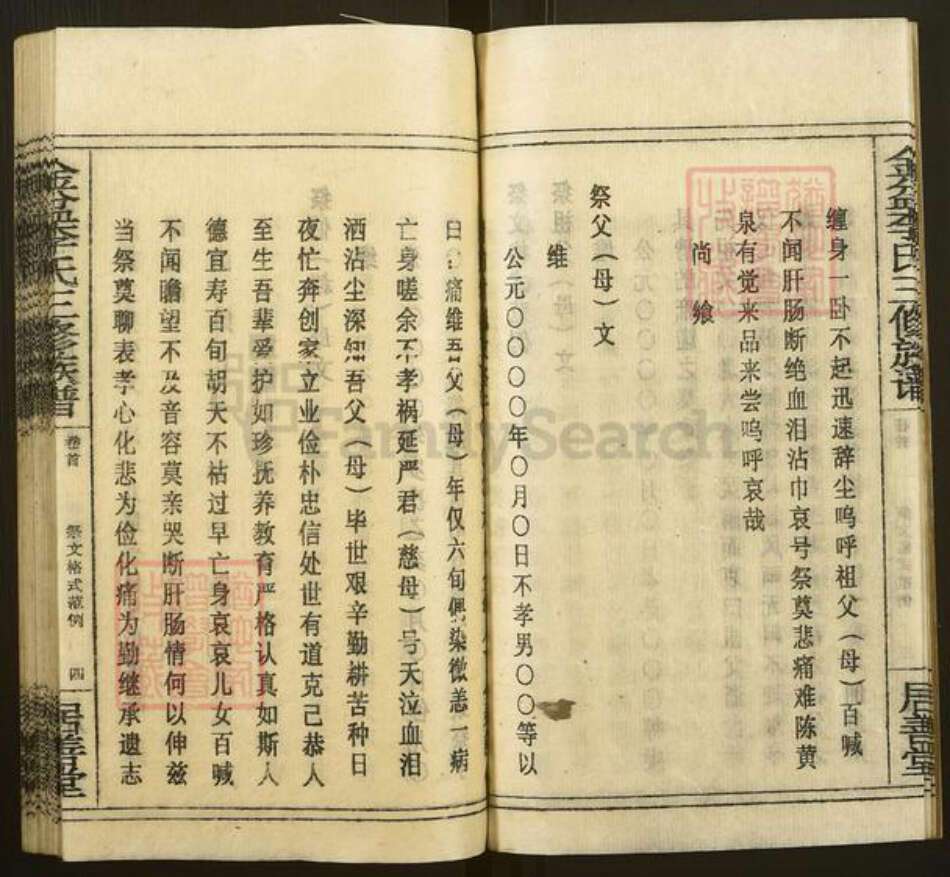 缠身一卧不起迅速辞尘呜呼祖父（母）百喊
不闻肝肠断绝血泪沾巾哀号祭奠悲痛难陈黄
泉有觉来品来尝呜呼哀哉
尚飨
祭父（母）文
维
公元〇〇〇〇年〇月〇日不孝男〇〇等以
曰痛维吾父（母）年仅六旬偶染微恙一病
亡身嗟余不孝祸延严君（慈母）号天泣血泪
洒沾尘深知吾父（母）毕世艰辛勤耕苦种日
夜忙奔创家立业俭朴忠信处世有道克己恭人
至生吾辈爱护如珍抚养教育严格认真如斯人
德宜寿百旬胡天不祜过早亡身哀哀儿女百喊
不闻瞻望不及音容莫亲哭断肝肠情何以伸兹
当祭奠聊表孝心化悲为俭化痛为勤继承遗志
金盆李氏三修族谱
卷首
祭文格式范例
四
居善堂
金盆李氏三修族谱
居善堂
FamilySearch